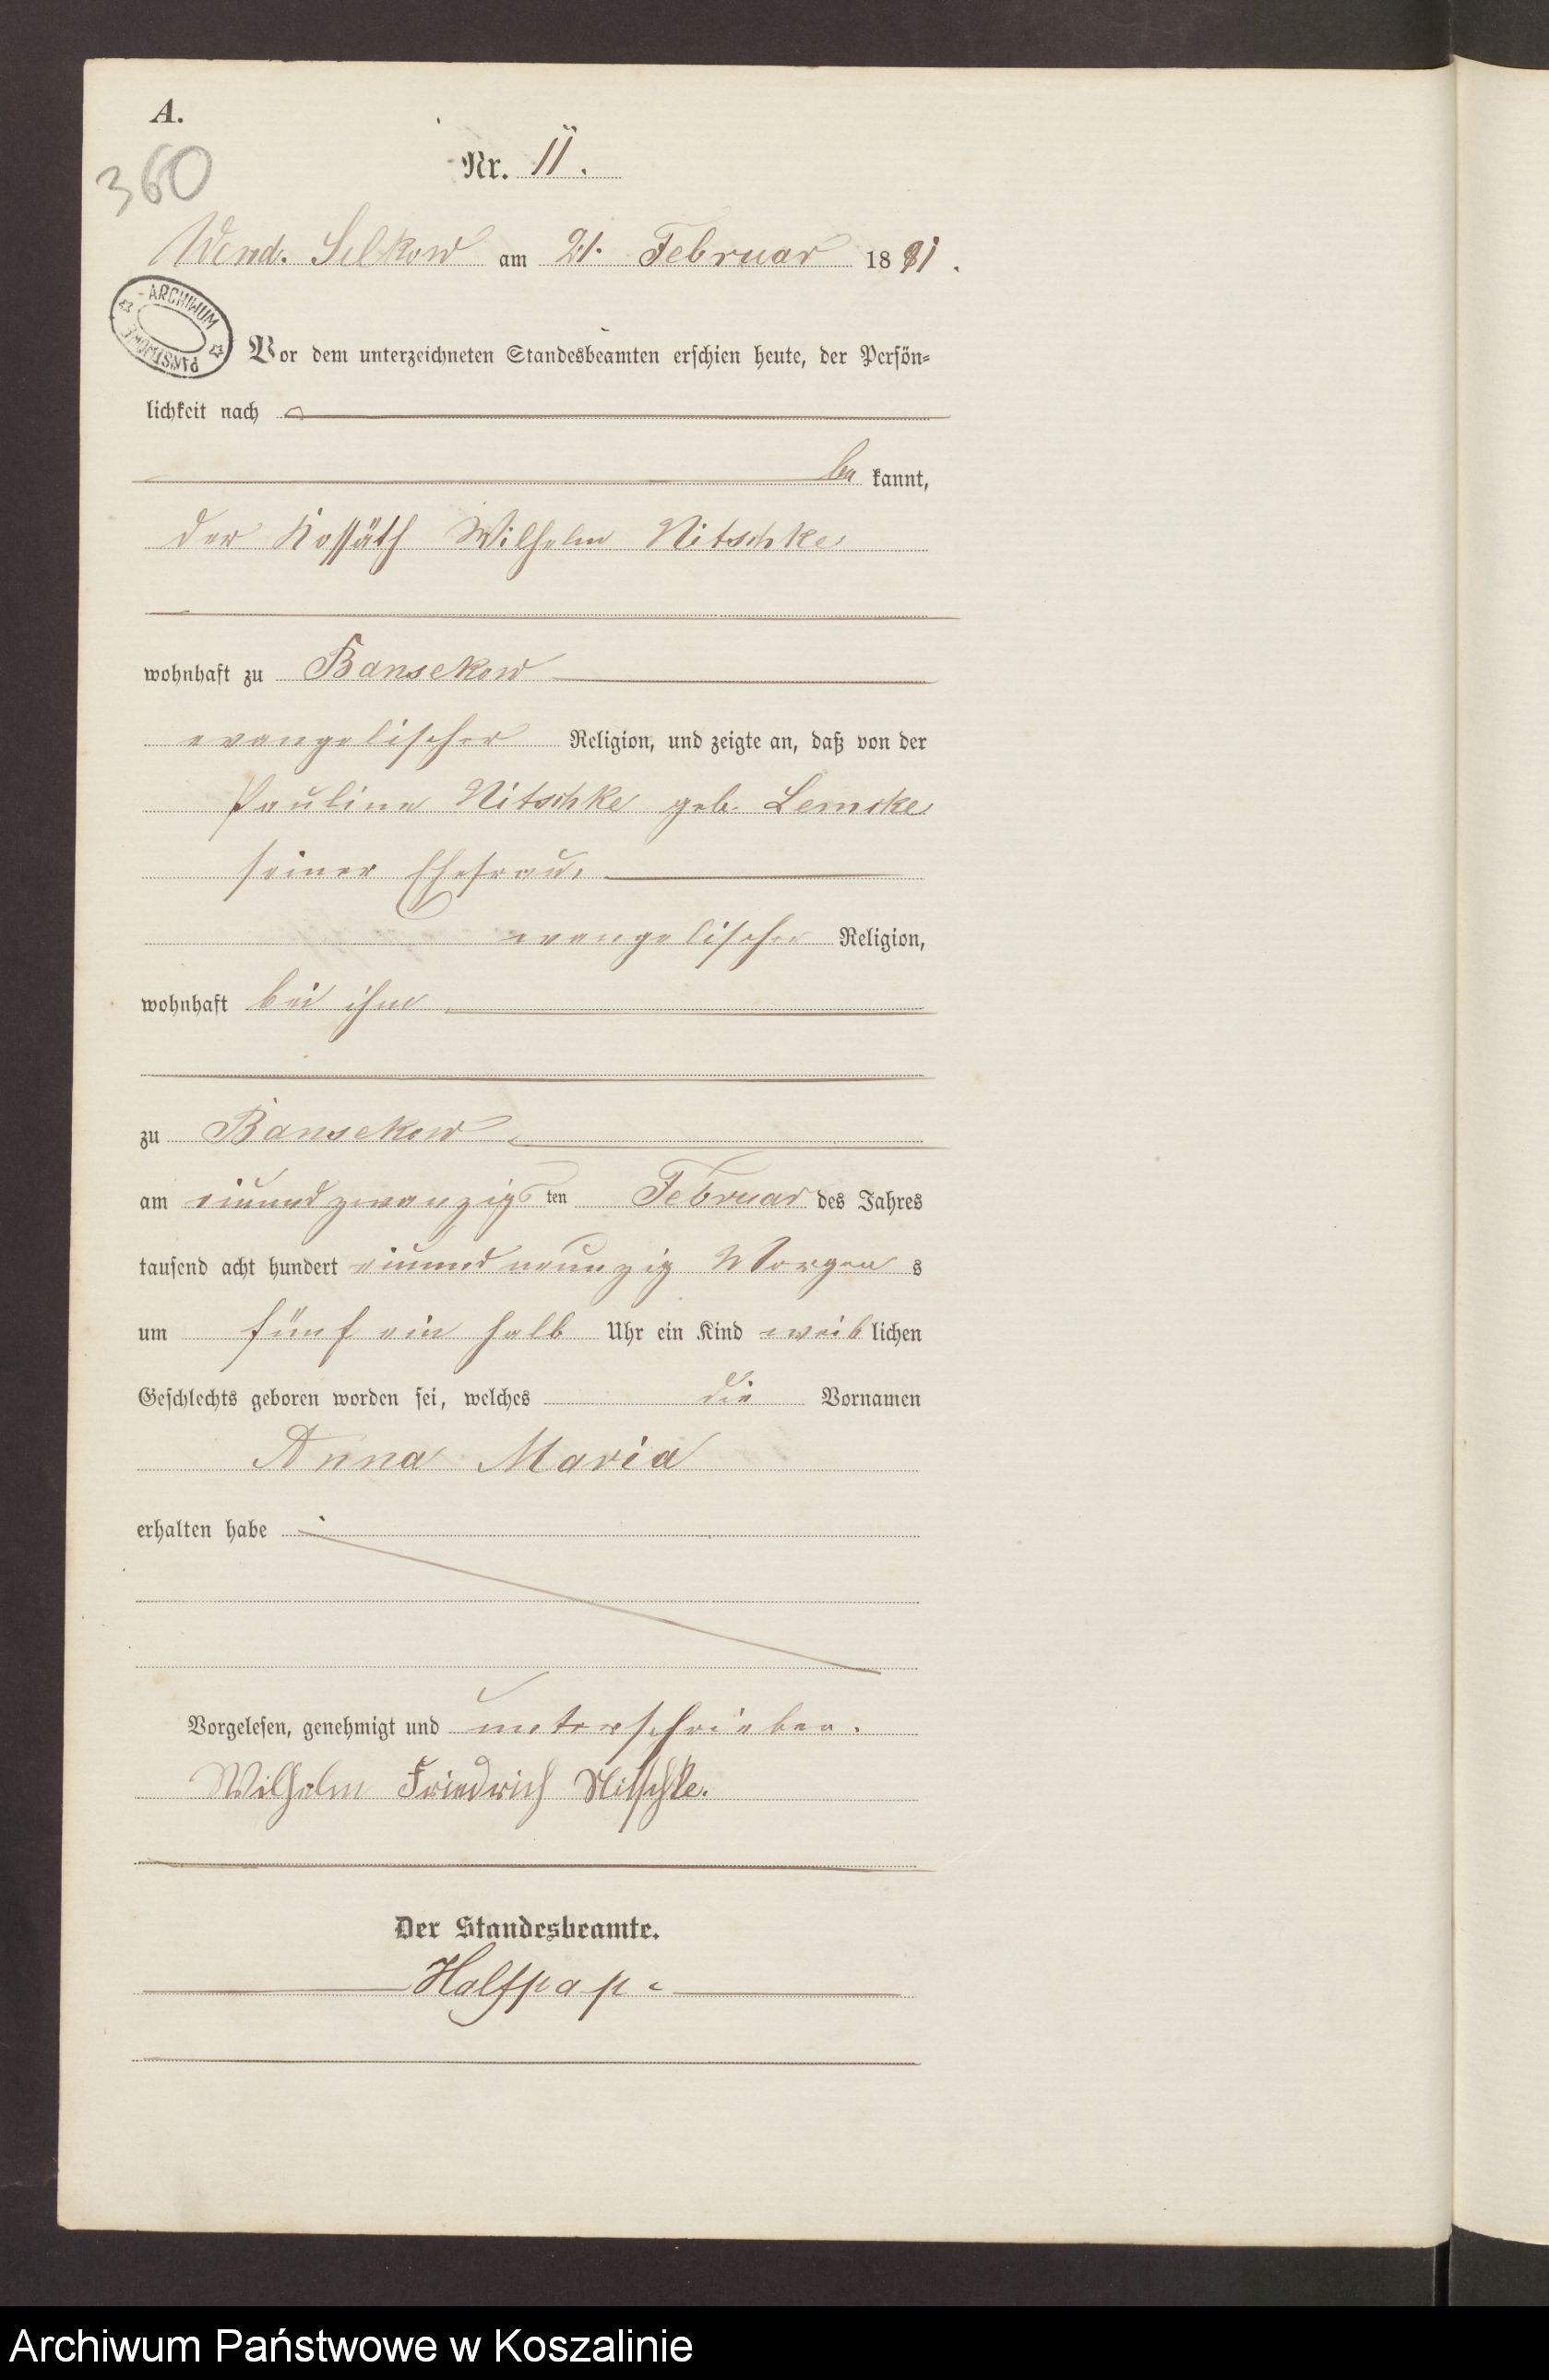 A.
360
Nr. 11.
Wend. Silkow am 21. Februar 1891.
ARCHIWUM PAŃSTWOWE
Vor dem unterzeichneten Standesbeamten erschien heute, der Persön=
lichkeit nach
be kannt,
der Kossäth Wilhelm Nitschke
wohnhaft zu Bansekow
evangelischer Religion, und zeigte an, daß von der
Pauline Nitschke geb. Lemcke
seiner Ehefrau,
evangelischer Religion,
wohnhaft bei ihm
zu Bansekow
am einundzwanzigsten Februar des Jahres
tausend acht hundert einundneunzig Morgens
um fünf ein halb Uhr ein Kind weiblichen
Geschlechts geboren worden sei, welches die Vornamen
Anna Maria
erhalten habe
Vorgelesen, genehmigt und unterschrieben.
Wilhelm Friedrich Nitschke.
Der Standesbeamte.
Halfpap.
Archiwum Państwowe w Koszalinie